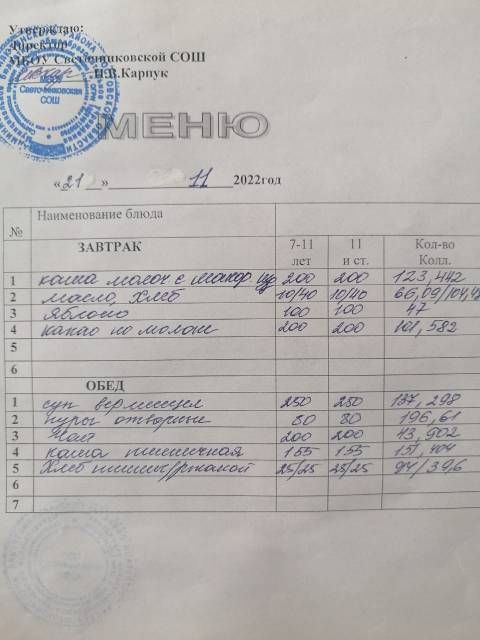 Утверждаю:
Директор
МБОУ Светочниковской СОШ
П.В.Карпук
Светочниковская
СОШ
МЕНЮ
«21» 11 2022год
№ Наименование блюда
ЗАВТРАК 7-11 лет 11 и ст. Кол-во Колл.
1 каша молоч с макар. из 200 200 123,442
2 масло, хлеб 10/40 10/40 66,09/104,4
3 яблоко 100 100 47
4 какао по молок 200 200 101,582
5
6
ОБЕД
1 суп вермишел 250 250 137,298
2 куры отворные 80 80 196,61
3 Чай 200 200 43,902
4 каша пшеничная 155 155 151,404
5 Хлеб пшенич/ржаной 25/25 25/25 94/39,6
6
7